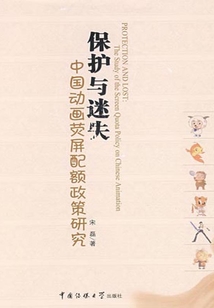 保护与迷失
PROTECTION AND LOST:
The Study of the Screen Quota Policy on Chinese Animation
中国动画荧屏配额政策研究
宋磊/著
中国传媒大学出版社